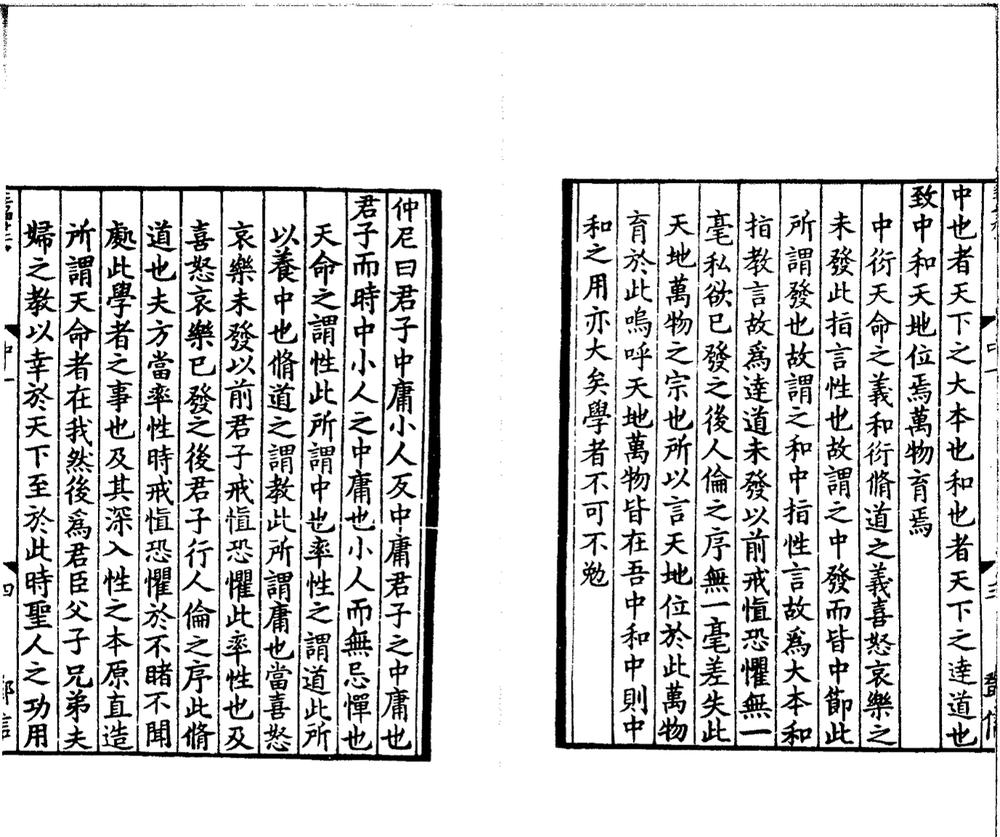 中也者天下之大本也和也者天下之達道也
致中和天地位焉萬物育焉
中衍天命之義和衍脩道之義喜怒哀樂之
未發此指言性也故謂之中發而皆中節此
所謂發也故謂之和中指性言故爲大本和
指教言故爲達道未發以前戒愼恐懼無一
毫私欲已發之後人倫之序無一毫差失此
天地萬物之宗也所以言天地位於此萬物
育於此嗚呼天地萬物皆在吾中和中則中
和之用亦大矣學者不可不勉
仲尼曰君子中庸小人反中庸君子之中庸也
君子而時中小人之中庸也小人而無忌憚也
天命之謂性此所謂中也率性之謂道此所
以養中也脩道之謂教此所謂庸也當喜怒
哀樂未發以前君子戒愼恐懼此率性也及
喜怒哀樂已發之後君子行人倫之序此脩
道也夫方當率性時戒愼恐懼於不睹不聞
處此學者之事也及其深入性之本原直造
所謂天命者在我然後爲君臣父子兄弟夫
婦之教以幸於天下至於此時聖人之功用
四